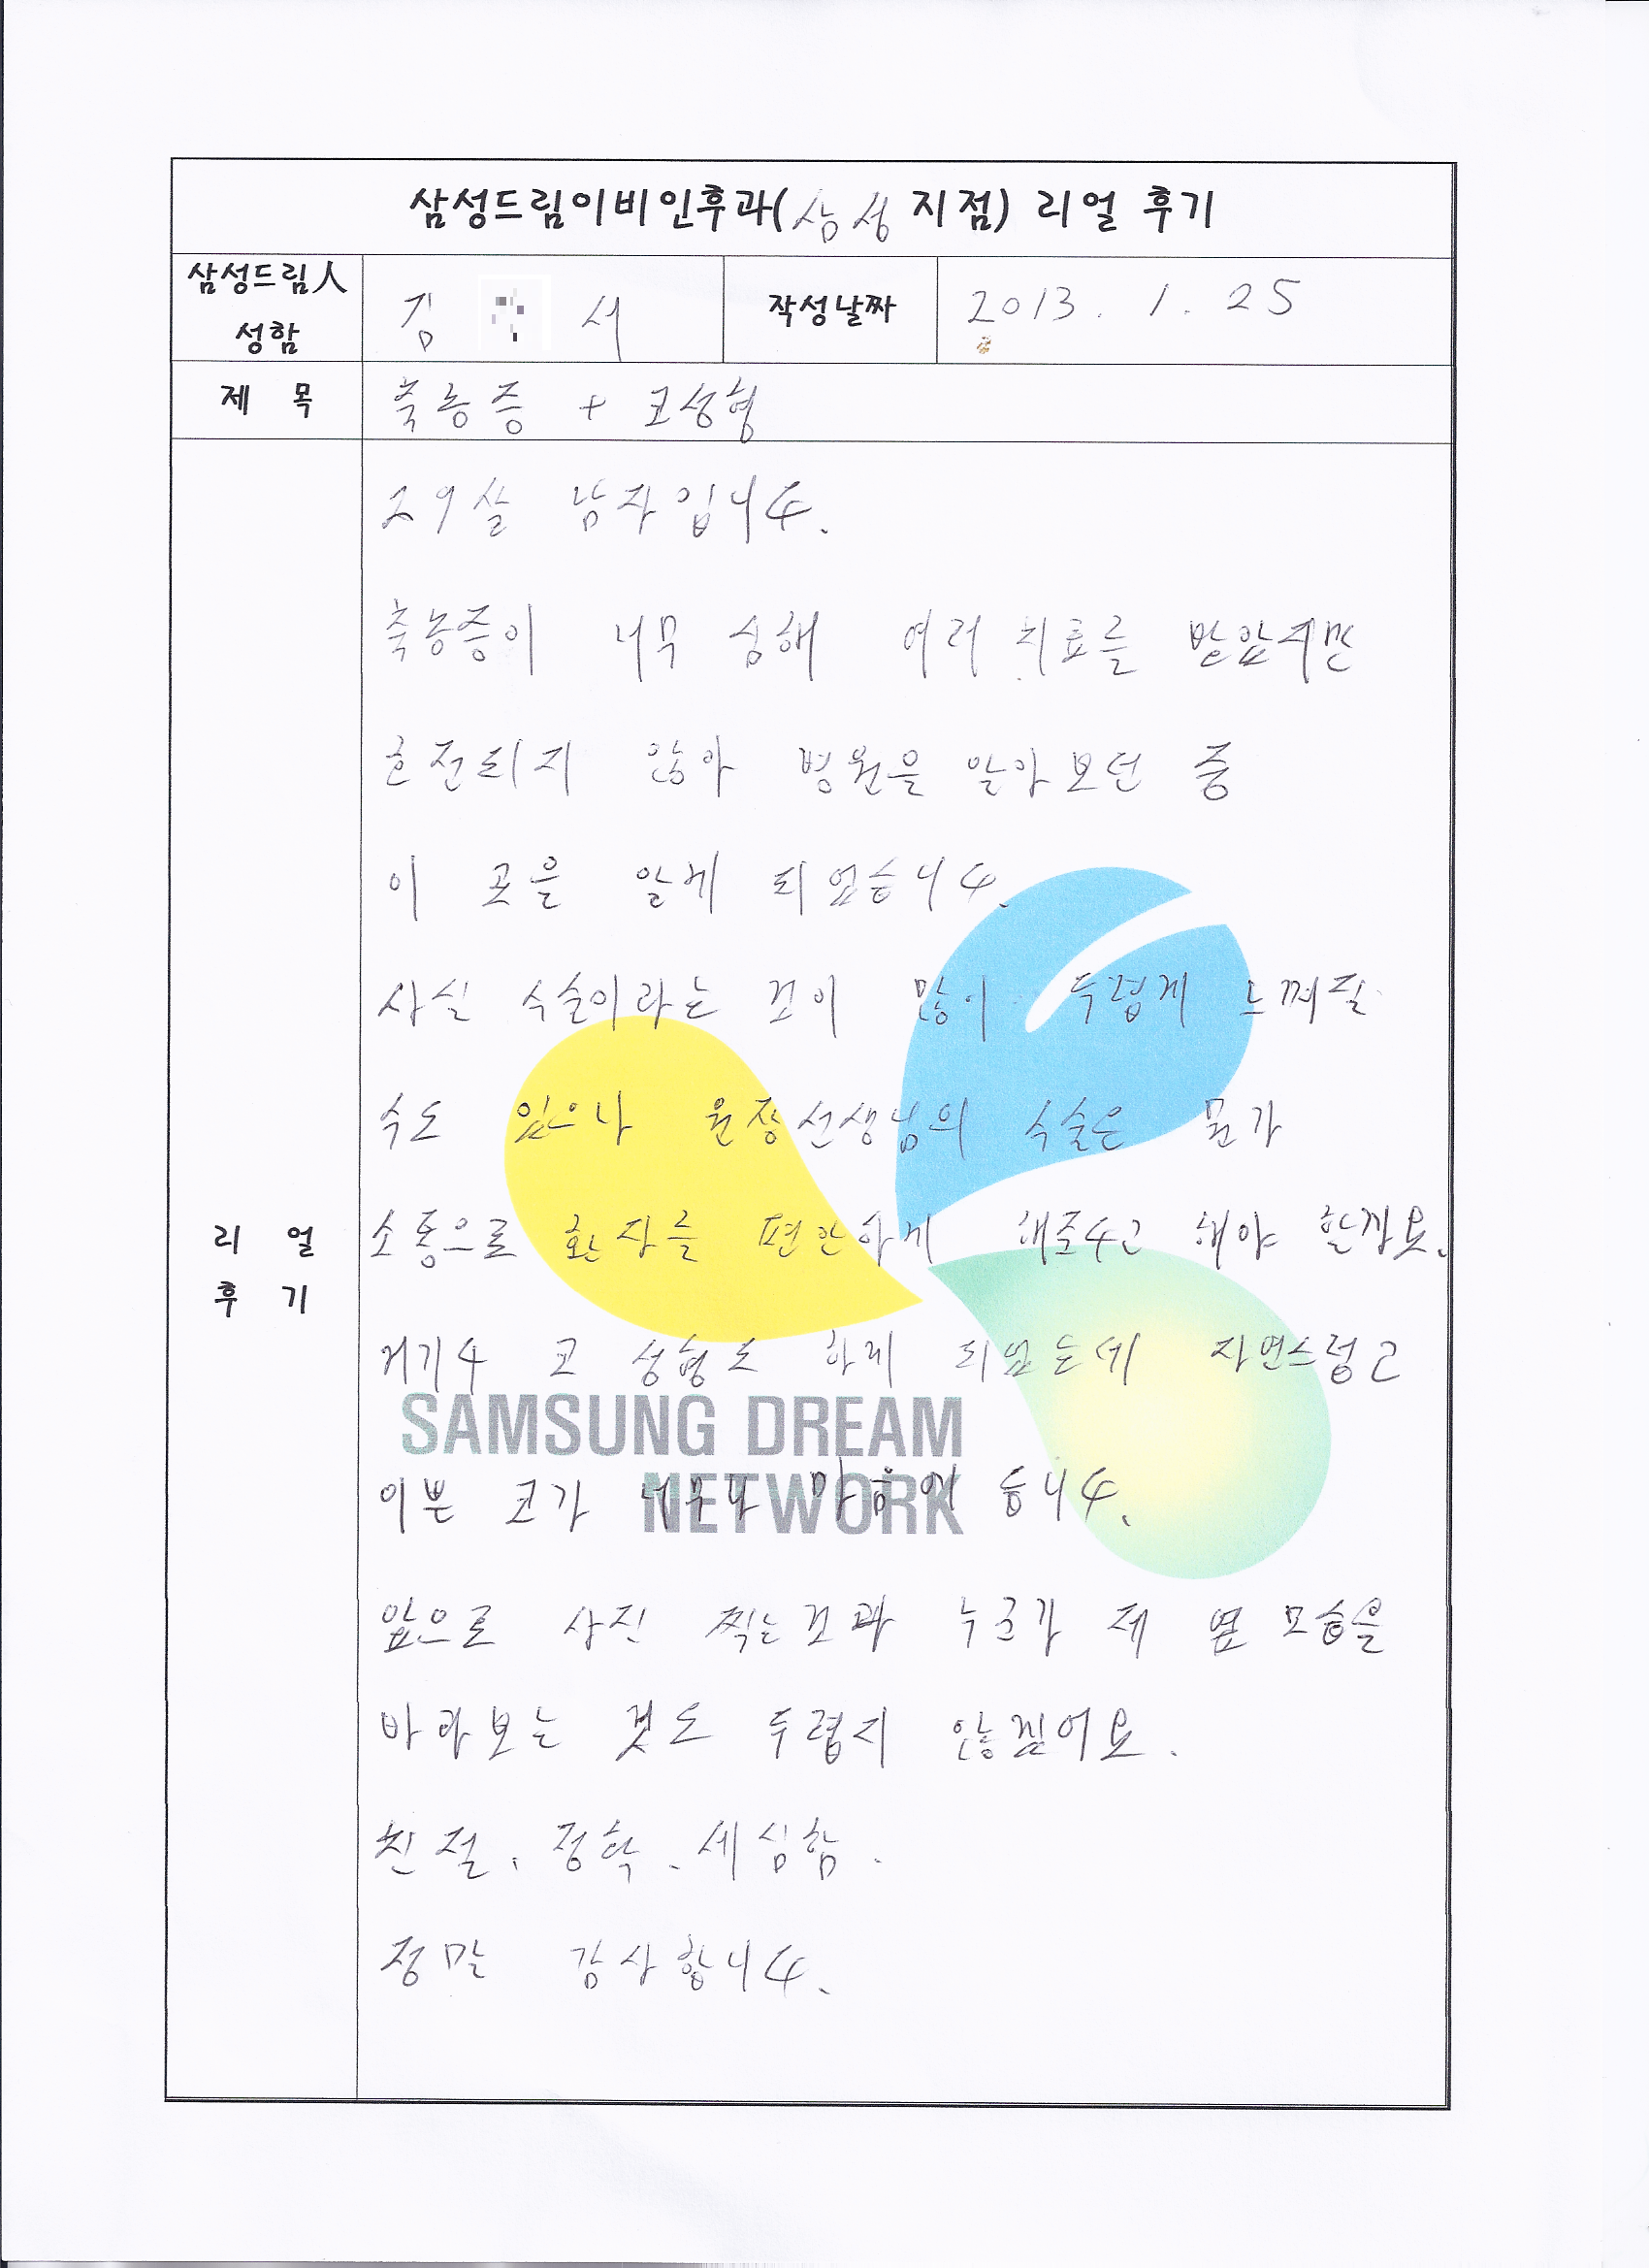 삼성드림이비인후과(삼성 지점) 리얼 후기
삼성드림人
성함
김 서
작성날짜
2013. 1. 25
제 목
축농증 + 코성형
29살 남자입니다.
축농증이 너무 심해 여러 치료를 받았지만
호전되지 않아 병원을 알아보던 중
이 곳을 알게 되었습니다.
사실 수술이라는 것이 많이 두렵게 느껴질
수도 있으나 원장선생님의 수술은 뭔가
소통으로 환자를 편안하게 해준다고 해야 할까요.
리 얼
후 기
거기다 코 성형도 하게 되었는데 자연스럽고
SAMSUNG DREAM
NETWORK
이쁜 코가 너무나 마음에 듭니다.
앞으로 사진 찍는것과 누군가 제 옆모습을
바라보는 것도 두렵지 않겠어요.
친절, 정확, 세심함.
정말 감사합니다.